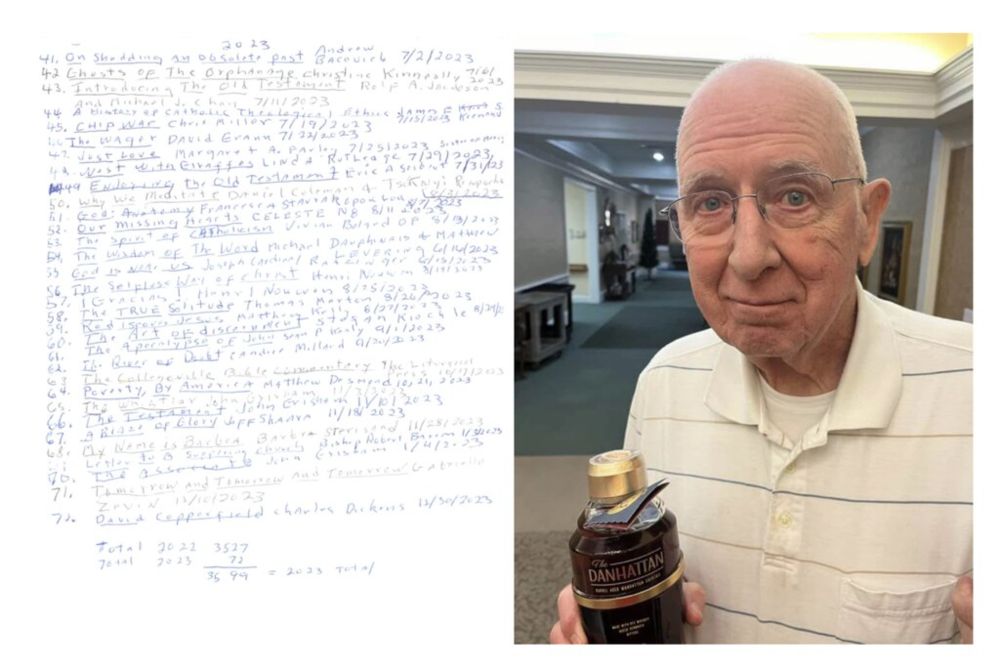 2023
41. On Shedding an Obsolete Past Andrew Bacevich 7/2/2023
42 Ghosts of The Orphanage Christine Kenneally 7/6/2023
43. Introducing The Old Testament Rolf A. Jacobson
and Michael J. Chan 7/11/2023
44 A History of Catholic Theological Ethics James F 7/15/2023
45. CHIP War Chris Miller 7/19/2023
The Wager David Grann 7/22/2023
47. Just Love Margaret A. Farley 7/25/2023
West With Giraffes Linda Rutledge 7/29/2023
49 Enduring the Old Testament Eric A Seibert 7/31/23
50. Why We Meditate Daniel Goleman & Tsoknyi Rinpoche
51. God: Anatomy Francesca Stavrakopoulou 8/7/2023
52. Our Missing Hearts CELESTE NG 8/11 2023
53. The Spirit of Catholicism Vivian Boland OP 8/13/2023
54. The Wisdom of The Word Michael Dauphinais & Matthew
LEVERING 2023
55 God is Near Us Joseph Cardinal Ratzinger 2023
56. The Selfless Way of Christ Henri Nouwen 2023
57. Gracias! Henri Nouwen 8/25/2023
58. The TRUE Solitude Thomas Merton 8/26/2023
59. Rediscover Jesus Matthew Kelly 8/27/2023
60. The Art of discernment Stefan Kiechle 8/29/2
61. The Apocalypse of John Sean P Kealy 9/1/2023
62. The River of Doubt Candice Millard 9/20/2023
63 The Collegeville Bible Commentary The Liturgical
Press 2023
64. Poverty, By America Matthew Desmond 10, 21, 2023
65. The John Grisham 2023
66. The Testament John Grisham 11/10/2023
A Blaze of Glory Jeff Shaara 11/18/2023
67.
68. My Name is Barbra Barbra Streisand 11/28/2023
Letter to A Suffering Church Bishop Robert Barron 2023
70. The Associate John Grisham 2023
71. Tomorrow and Tomorrow and Tomorrow Gabrielle
Zevin 12/10/2023
72. David Copperfield Charles Dickens 12/30/2023
Total 2022 3527
Total 2023 72
3599 = 2023 Total
The
DANHATTAN
BARREL AGED MANHATTAN COCKTAIL
MADE WITH RYE WHISKEY
BITTERS